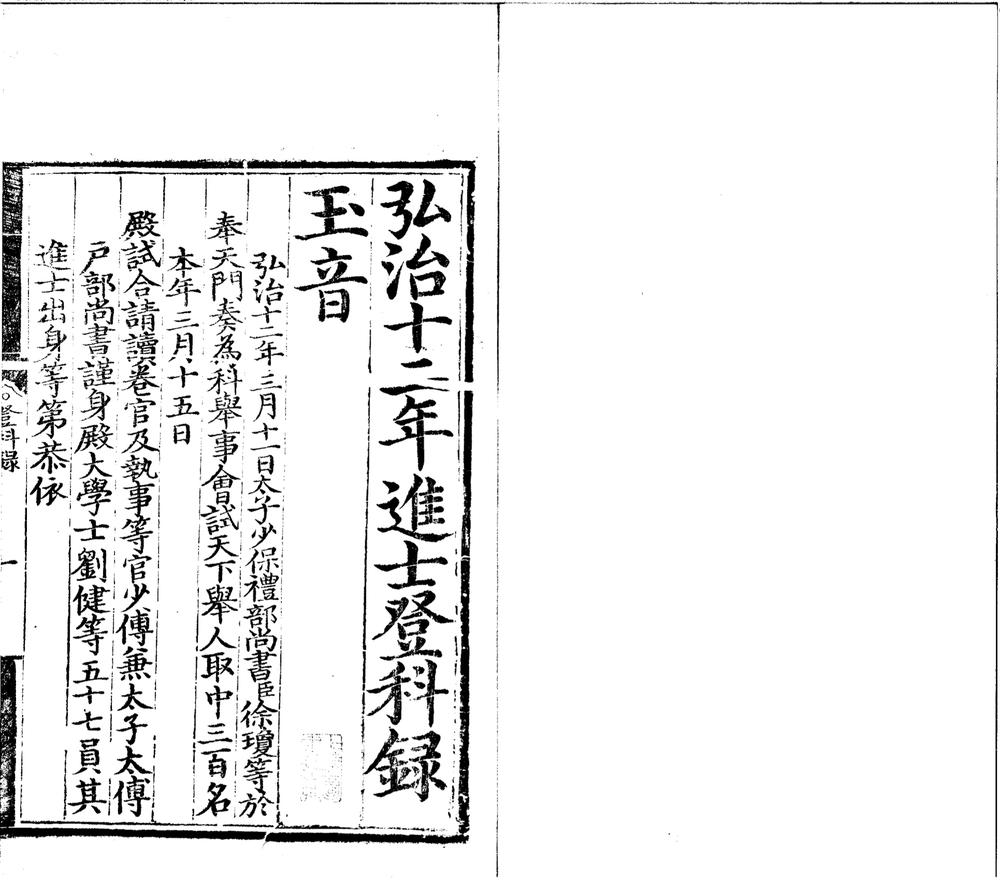 弘治十二年進士登科錄
玉音
弘治十二年三月十一日太子少保禮部尚書臣徐瓊等於
奉天門奏為科舉事會試天下舉人取中三百名
本年三月十五日
殿試合請讀卷官及執事等官少傅兼太子太傅
戶部尚書謹身殿大學士劉健等五十七員其
進士出身等第恭依
登科錄
一